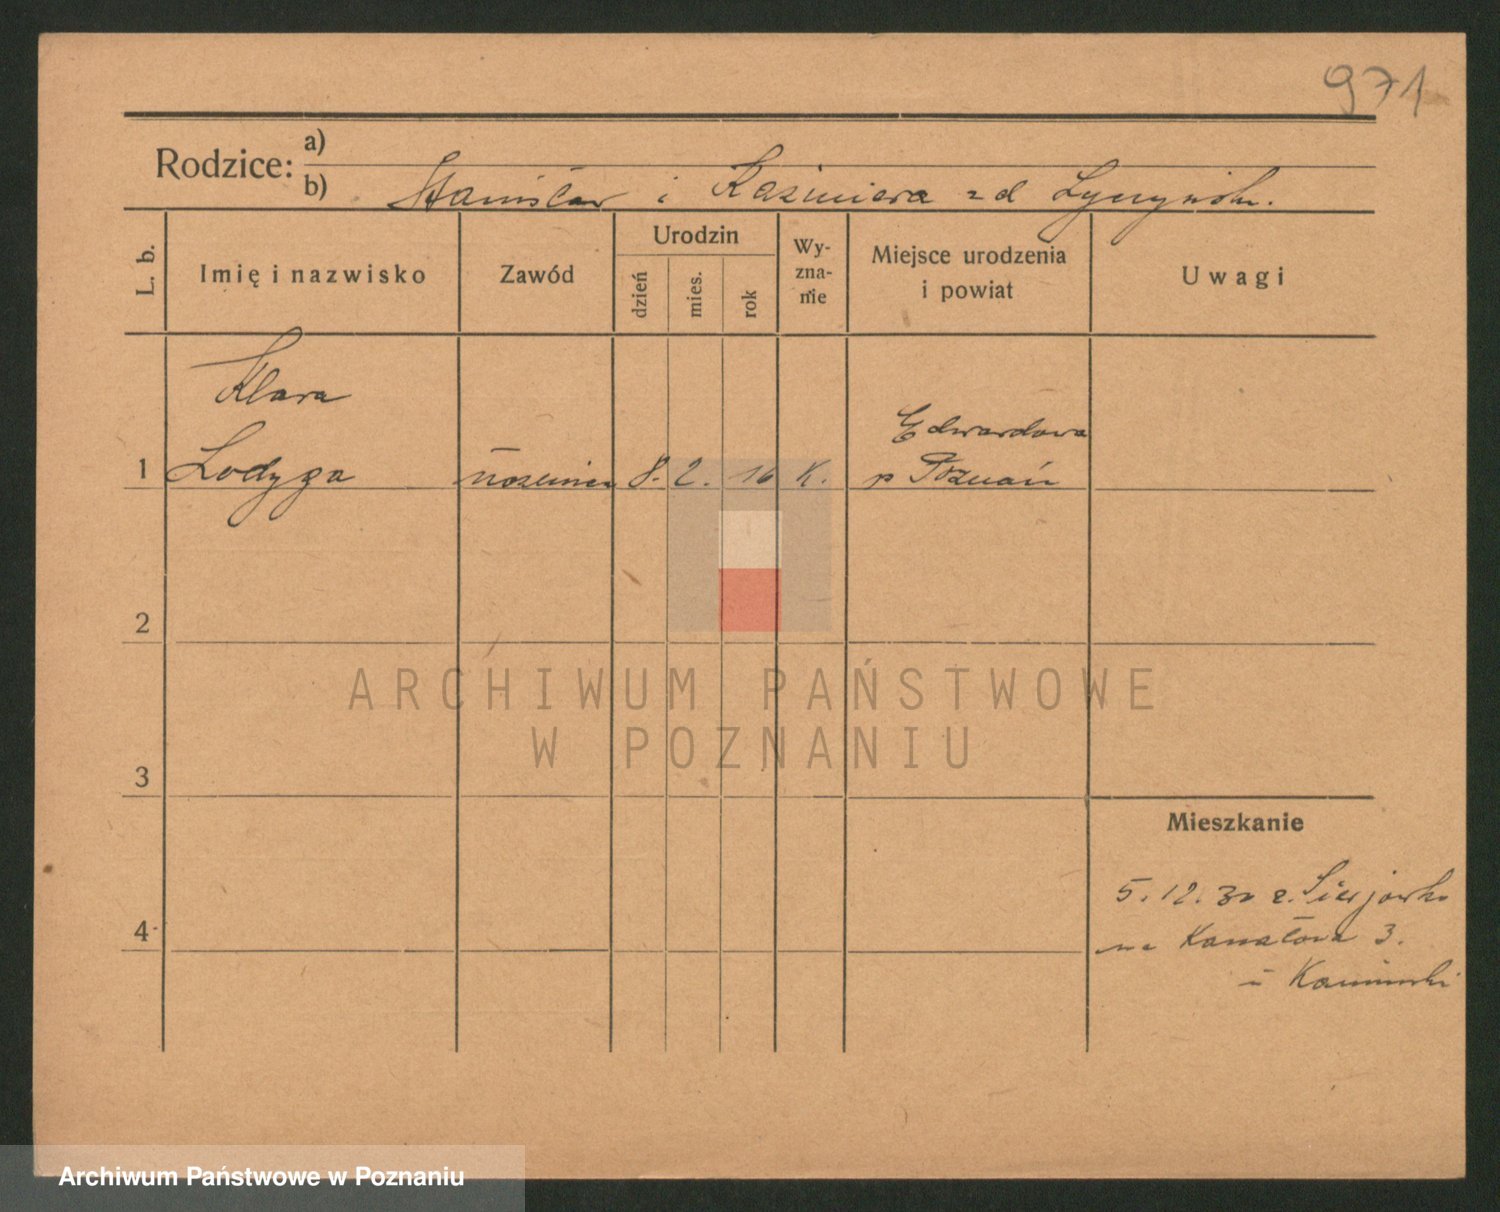 971
Rodzice: a)
b) Stanisław i Kazimiera zd
L. b.
Imię i nazwisko
Zawód
Urodzin
dzień
mies.
rok
Wy-
zna-
nie
Miejsce urodzenia
i powiat
Uwagi
Klara
Edwardowa
1 Lodyga 8. 2. 16 K. p Poznań
2
3
4
Mieszkanie
5. 12. 30 z.
na Kanałowa 3.
u Kaminski
ARCHIWUM PAŃSTWOWE
W POZNANIU
Archiwum Państwowe w Poznaniu